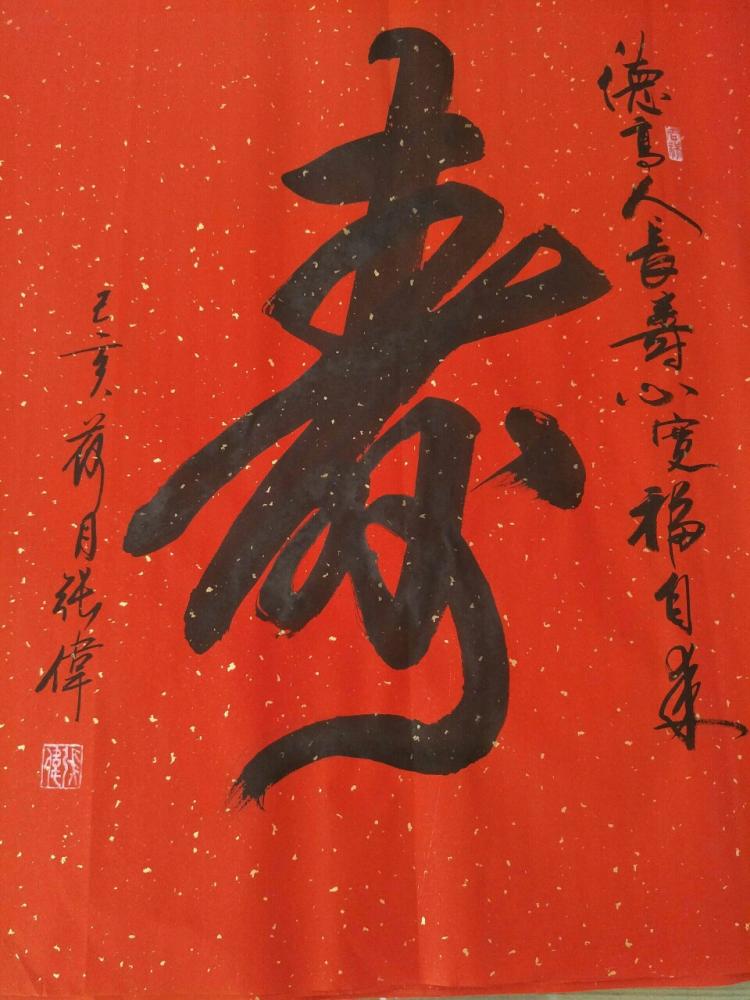 德高人長壽心寬福自來
壽
己亥荷月張偉
張偉